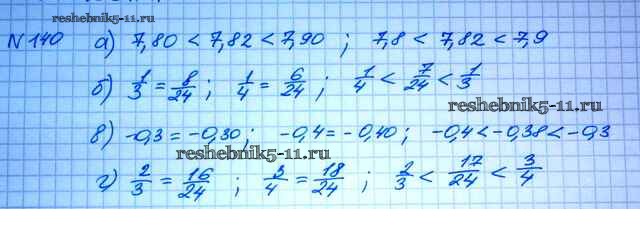 reshebnik5-11.ru
N 140 а) 7,80 < 7,82 < 7,90 ; 7,8 < 7,82 < 7,9
б) 1/3 = 8/24 ; 1/4 = 6/24 ; 1/4 < 7/24 < 1/3
reshebnik5-11.ru
в) -0,3 = -0,30 ; -0,4 = -0,40 ; -0,4 < -0,38 < -0,3
reshebnik5-11.ru
г) 2/3 = 16/24 ; 3/4 = 18/24 ; 2/3 < 17/24 < 3/4